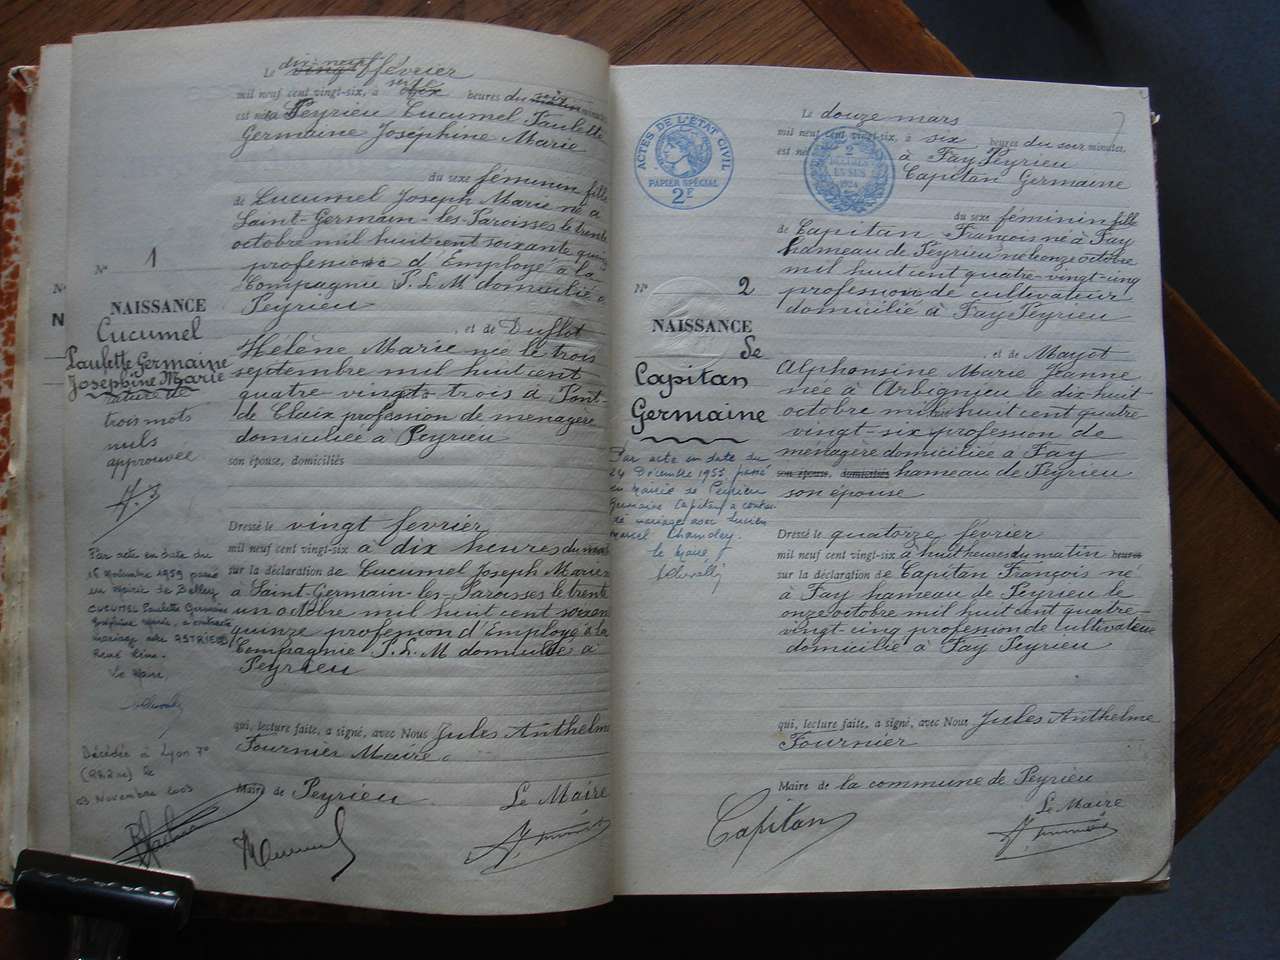 Le dix neuf
vingt février
mil neuf cent vingt-six, à six heures du
est née à Peyrieu Cucumel Paulette
Germaine Josephine Marie
du sexe féminin fille
de Cucumel Joseph Marie né à
Saint-Germain-les-Paroisses le trente
octobre mil huit cent soixante quinze
profession d'Employé à la
Compagnie P. L. M domicilié à
Peyrieu
, et de Duflot
Helène Marie née le trois
septembre mil huit cent
quatre vingts trois à Pont-
de Claix profession de menagère
domiciliée à Peyrieu
son épouse, domiciliés
Dressé le vingt fevrier
mil neuf cent vingt-six à dix heures du matin
sur la déclaration de Cucumel Joseph Marie né
à Saint-Germain-les-Paroisses le trente
un octobre mil huit cent soixan
quinze profession d'Employé à la
Compagnie P. L. M domicilié à
Peyrieu
qui, lecture faite, a signé, avec Nous Jules Anthelme
Fournier Maire.
Maire de Peyrieu Le Maire
N° 1
NAISSANCE
Cucumel
Paulette Germaine
Josephine Marie
rature de
trois mots
nuls
approuvée
Par acte en date du
16 novembre 1959 passé
en mairie de Belley
CUCUMEL Paulette Germaine
Joséphine Marie, a contracté
mariage avec
René
Le Maire,
Décédée à Lyon 7°
(Rhône) le
03 Novembre 2003
N°
N
ACTES DE L'ÉTAT CIVIL
PAPIER SPÉCIAL
2F
2
DÉCIMES
EN SUS
1924
Le douze mars
mil neuf cent vingt-six, à six heures du soir minutes,
est née à Fay Peyrieu
Capitan Germaine
du sexe féminin fille
de Capitan François né à Fay
hameau de Peyrieu né le onze octobre
mil huit cent quatre-vingt-cinq
profession de cultivateur
domicilié à Fay Peyrieu
, et de Mayot
Alphonsine Marie Jeanne
née à Arbignieu le dix huit
octobre mil huit cent quatre
vingt-six profession de
menagère domiciliée à Fay
son épouse, domiciliés hameau de Peyrieu
son épouse
Dressé le quatorze février
mil neuf cent vingt-six à huit heures du matin heures
sur la déclaration de Capitan François né
à Fay hameau de Peyrieu le
onze octobre mil huit cent quatre-
vingt-cinq profession de cultivateur
domicilié à Fay Peyrieu
qui, lecture faite, a signé, avec Nous Jules Anthelme
Fournier
Maire de la commune de Peyrieu
Le Maire
Capitan
N° 2
NAISSANCE
de
Capitan
Germaine
Par acte en date du
24 Décembre 1955 passé
en mairie de Peyrieu
Germaine Capitan a contrac
té mariage avec Lucien
Marcel
le Maire